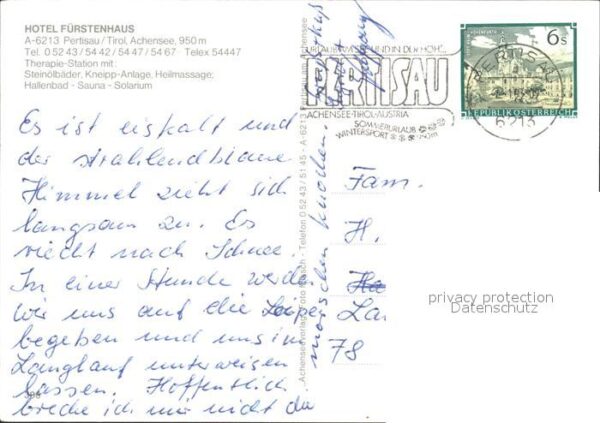 HOTEL FÜRSTENHAUS
A-6213 Pertisau / Tirol, Achensee, 950 m
Tel. 0 52 43 / 54 42 / 54 47 / 54 67 Telex 54447
Therapie-Station mit:
Steinölbäder, Kneipp-Anlage, Heilmassage;
Hallenbad - Sauna - Solarium
Es ist eiskalt und
der strahlendblaue
Himmel zieht sich
langsam zu. Es
riecht nach Schnee.
In einer Stunde werden
wir uns auf die Loipe
begeben und uns im
Langlauf unterweisen
lassen. Hoffentlich
breche ich mir nicht da
morschen Knochen.
Gruß + Kuß
Achenseeverlag Foto
- Telefon 0 52 43 / 51 45 - A-6213 Pertisau am Achensee
URLAUB AM SEE UND IN DER HÖH'...
PERTISAU
ACHENSEE-TIROL-AUSTRIA
SOMMERURLAUB
WINTERSPORT 950m
PERTISAU
6213
6 S
REPUBLIK ÖSTERREICH
Fam.
H.
Ha
La
78
privacy protection
Datenschutz